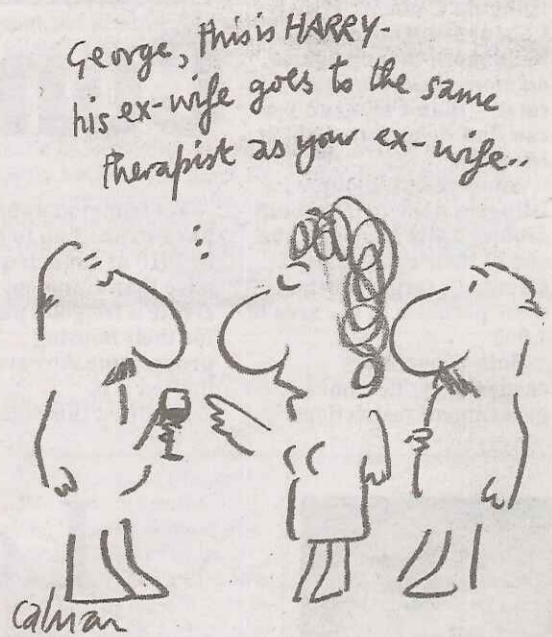 George, this is HARRY-
his ex-wife goes to the same
therapist as your ex-wife..
Calman